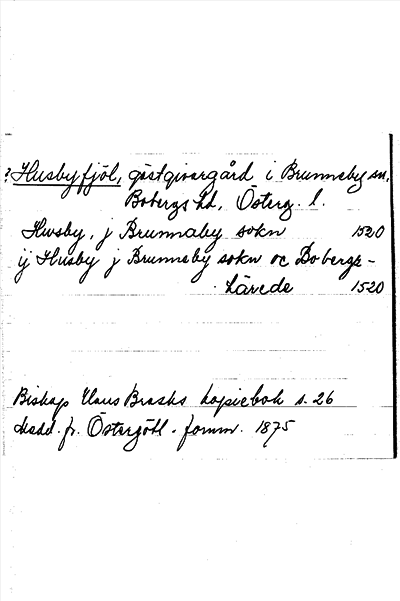 ? Husbyfjöl, gästgivargård i Brunneby sn,
Bobergs hd, Österg. l.
Huusby, j Brunnaby sokn 1520
ij Husby j Brunneby sokn oc Bobergs-
härede 1520
Biskop Hans Brasks kopiebok s. 26
Medd. fr. Östergötl. fornm. 1875